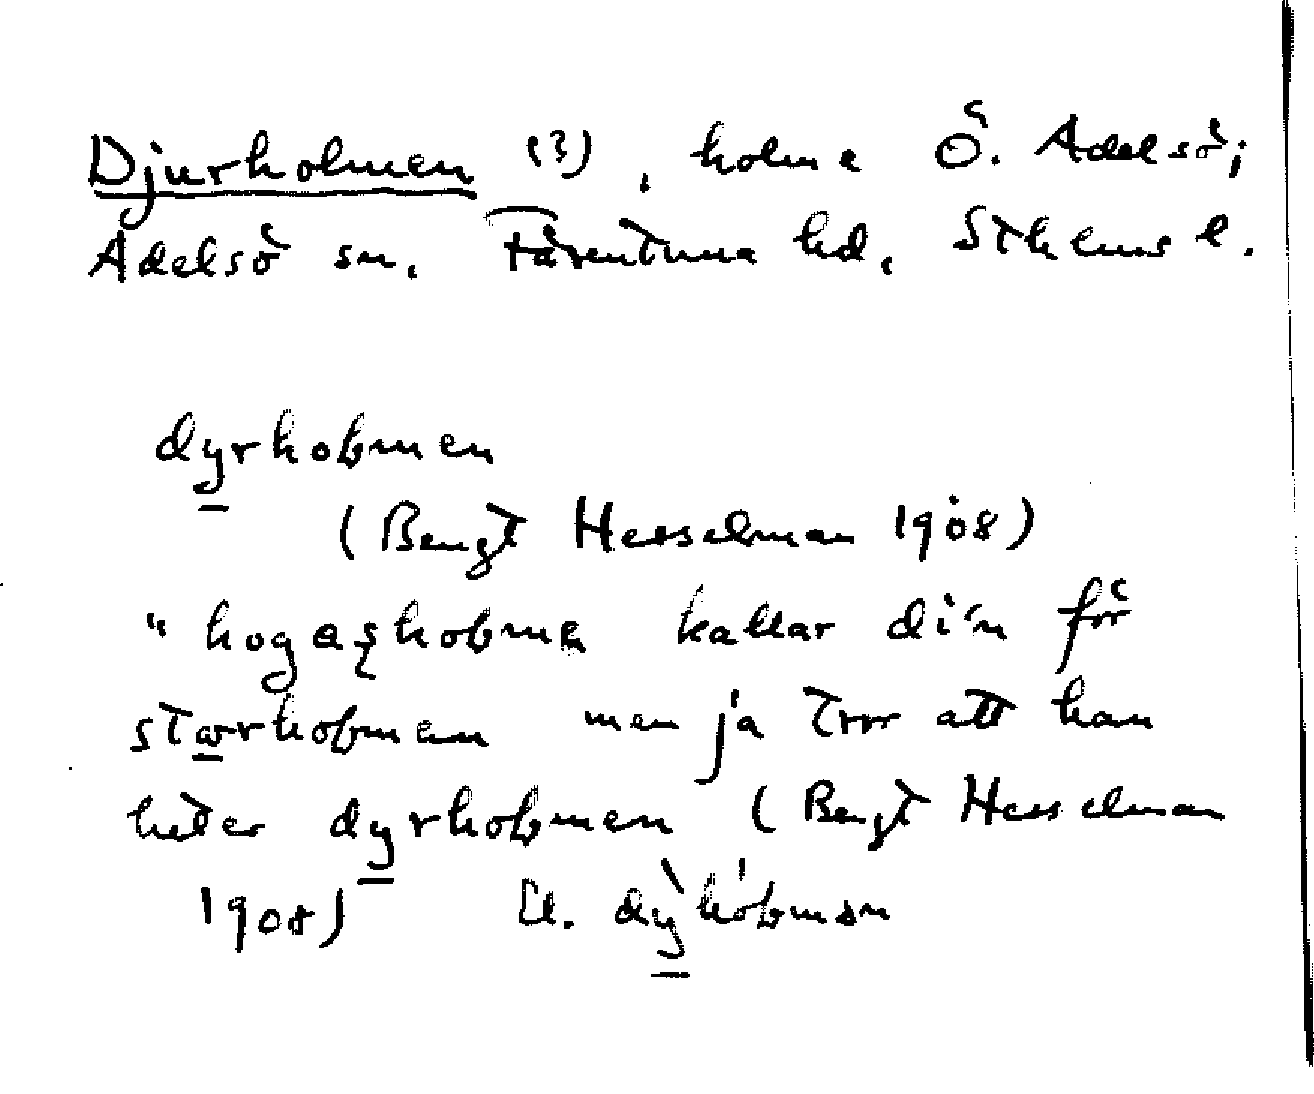 Djurholmen (?), holme Ö. Adelsö;
Adelsö sn. Färentuna hd, Sthlms l.
dyrholmen
(Bengt Hesselman 1908)
" kallar di'n för
men ja tror att han
heter dyrholmen (Bengt Hesselman
1908)